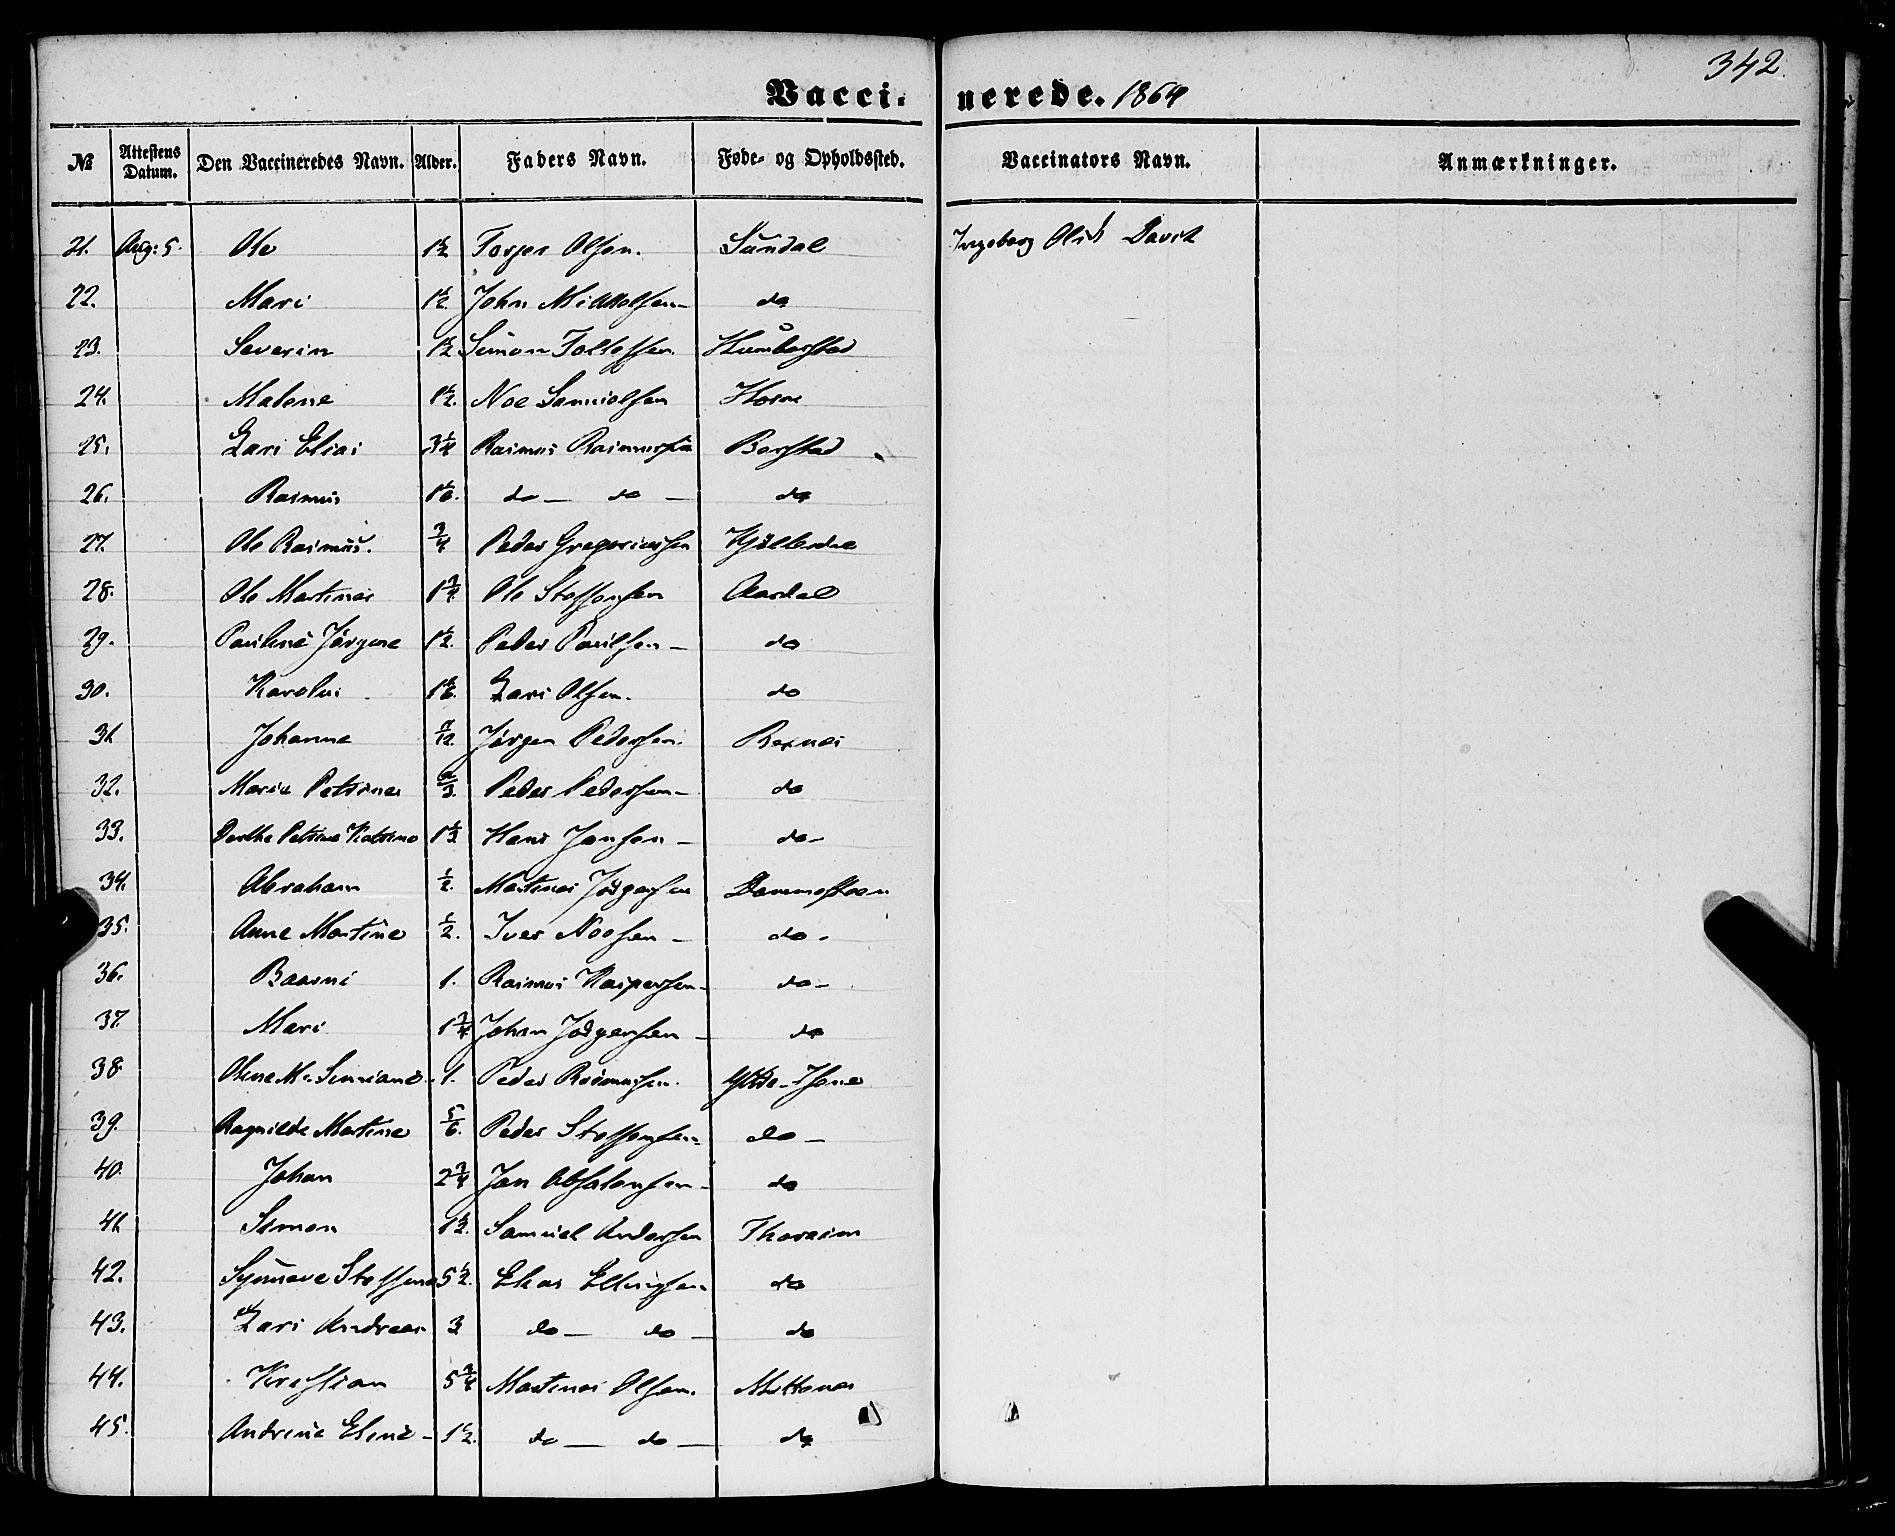 342.
Vaccinerede. 1864
№ Attestens Datum. Den Vaccineredes Navn. Alder. Faders Navn. Føde- og Opholdssted. Vaccinators Navn. Anmærkninger.
21. Aug: 5. Ole 1½ Torger Olsen. Sundal Ingeborg Olsd Davik
22. Mari 1½. John Mikkelsen do
23. Severin 1½ Simon Tollefsen Humborstad
24. Malene 1½. Noe Samuelsen
25. Lars Elias 3¼ Rasmus Rasmussen Borstad
26. Rasmus do do do
27. Ole Rasmus. ¾. Peder Gregoriussen
28. Ole Martines 1¾. Ole Steffensen Aardal
29. Pauline Jørgine 1½. Peder Paulsen do
30. Karolus Lars Olsen. do
31 Johanne 7/12. Jørgen Pedersen.
32. Marie Petrine ⅔. Peder Pedersen do
33. Dorthe Petrine Katrine 1⅓ Hans Jansen do
34. Abraham ½. Martines Jørgensen
35. Anne Martine ½. Iver Noesen do
36. Baarni 1. Rasmus Kaspersen do
37. Mari 1¾ Johan Jørgensen do
38. 1. Peder Rasmussen.
39. Ragnilde Martine ⅚. Peder Steffensen do
40. Johan 2¾ Jan Absalonsen do
41 Simon 1½. Samuel Andersen
42. Synneve Steffine 5½. Elias Ellingsen do
43. Lars Andreas 3 do do do
44. Kristian 5¾ Martines Olsen.
45. Andrine Eline 1½. do do do